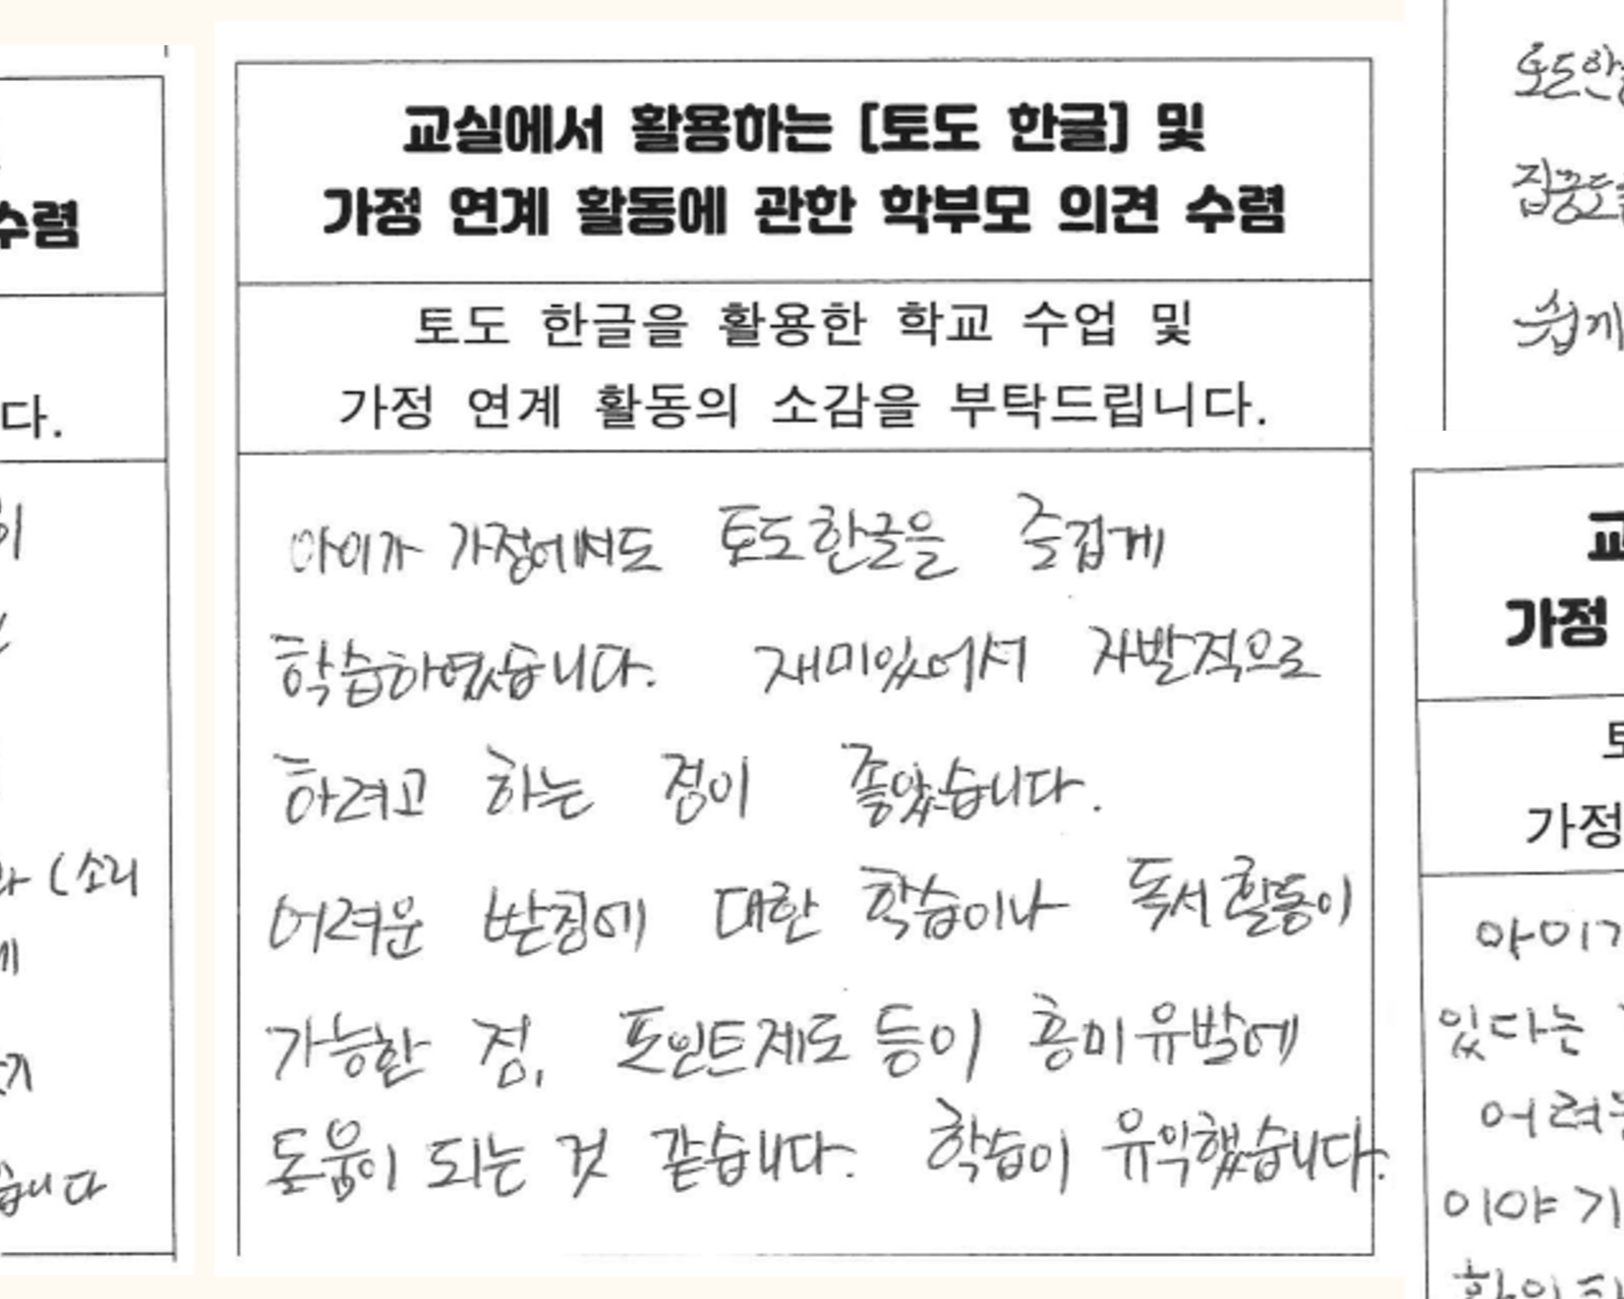 수렴
다.
(소리
습니다
교실에서 활용하는 [토도 한글] 및
가정 연계 활동에 관한 학부모 의견 수렴
토도 한글을 활용한 학교 수업 및
가정 연계 활동의 소감을 부탁드립니다.
아이가 가정에서도 토도한글을 즐겁게
학습하였습니다. 재미있어서 자발적으로
하려고 하는 점이 좋았습니다.
어려운 받침에 대한 학습이나 독서활동이
가능한 점, 포인트제도 등이 흥미유발에
도움이 되는 것 같습니다. 학습이 유익했습니다.
토도한
집중도
쉽게
교
가정
토
가정
아이가
있다는
어려
이야기